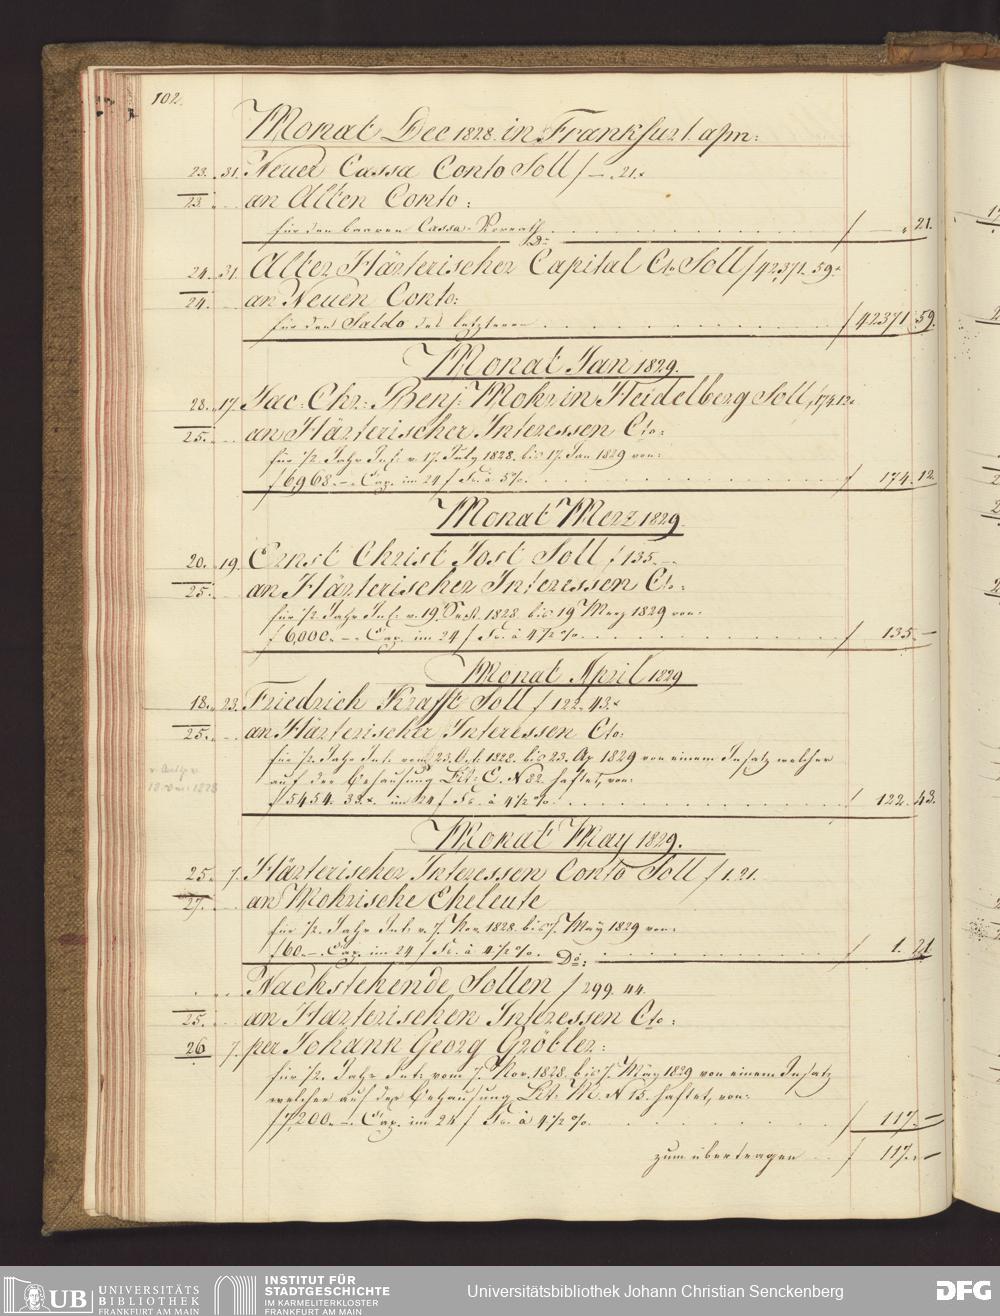 102.
Monat Dec 1828. in Frankfurt a/m:
23. 31. Neuer Cassa Conto Soll f —„21.x
23. an Alten Conto:
für den baaren Cassa-Vorrath f — „ 21.
Do:
24. 31. Alter Härterischer Capital Cto Soll f 42,371. 59.x
24. an Neuen Conto:
für den Saldo des letzteren f 42371 59.
Monat Jan 1829.
28. 17. Jac: Chr: Benj: Mohr in Heidelberg Soll f 174.12.x
25. an Härterischer Interessen Cto:
für 1/2 Jahr Int: v. 17. July 1828. bis 17. Jan 1829 von:
f 6968.—. Cap. im 24 f Fs. à 5%. f 174. 12.
Monat Merz 1829.
20. 19. Ernst Christ Jost Soll f 135.—
25. an Härterischen Interessen Cto:
für 1/2 Jahr Int: v. 19. Sept. 1828. bis 19 Merz 1829 von:
f 6,000.—. Cap. im 24 f Fs. à 4 1/2 %. f 135. —
Monat April 1829
18. 23. Friedrich Krafft Soll f 122. 43.x
25. an Härterischer Interessen Cto:
für 1/2 Jahr Int: vom 23. Oct. 1828. bis 23. Ap 1829 von einem Insatz welcher
auf der Behausung Lit: E. N 82 haftet, von:
f 5454. 33.x. im 24 f Fs. à 4 1/2 %. f 122. 43.
18 1828
Monat May 1829.
25. 7. Härterischer Interessen Conto Soll f 1. 21.
27. an Mohrische Eheleute
für 1/2 Jahr Int: v. 7. Nov 1828. bis 7. May 1829 von:
f 60.—. Cap. im 24 f Fs. à 4 1/2 %. f 1. 21.
Do:
Nachstehende Sollen f 299. 44.
25. an Härterischen Interessen Cto:
26 7. per Johann Georg Gröbler:
für 1/2 Jahr Int: vom 7. Nov. 1828. bis 7. May 1829 von einem Insatz
welcher auf der Behausung Lit: M. N 15. haftet, von:
f 5,200.—. Cap. im 24 f Fs. à 4 1/2 %. f 117. —
zum übertragen f 117. —
UB UNIVERSITÄTS
BIBLIOTHEK
FRANKFURT AM MAIN
INSTITUT FÜR
STADTGESCHICHTE
IM KARMELITERKLOSTER
FRANKFURT AM MAIN
Universitätsbibliothek Johann Christian Senckenberg
DFG